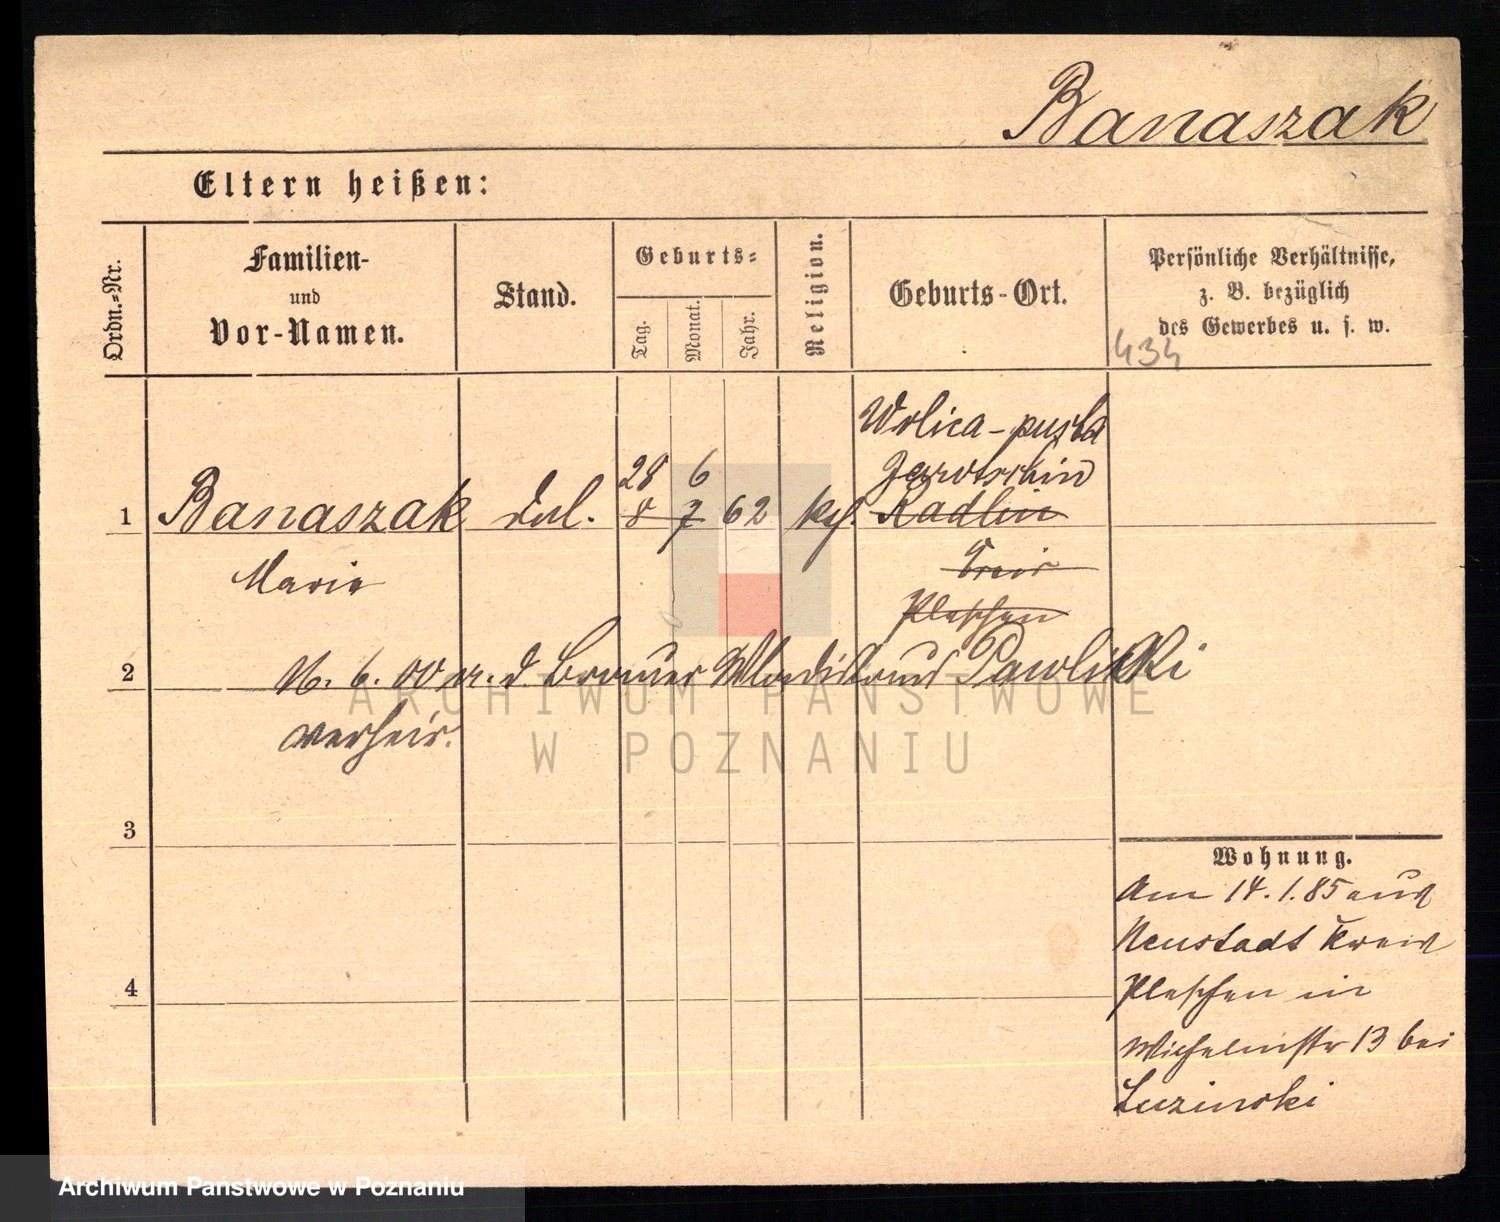 Banaszak
Eltern heißen:
Ordn.-Nr.
Familien-
und
Vor-Namen.
Stand.
Geburts-
Tag.
Monat.
Jahr.
Religion.
Geburts-Ort.
Persönliche Verhältnisse,
z. B. bezüglich
des Gewerbes u. s. w.
434
Wolica-pusta
28 6 Jarotschin
1 Banaszak 8 7 62 Radlin
Marie Kreis
Pleschen
2 6. 00 m. d. Pawlicki
verheir.
ARCHIWUM PAŃSTWOWE
W POZNANIU
3
Wohnung.
Am 14.1.85 aus
Neustadt Kreis
4
Pleschen in
13 bei
Luzinski
Archiwum Państwowe w Poznaniu